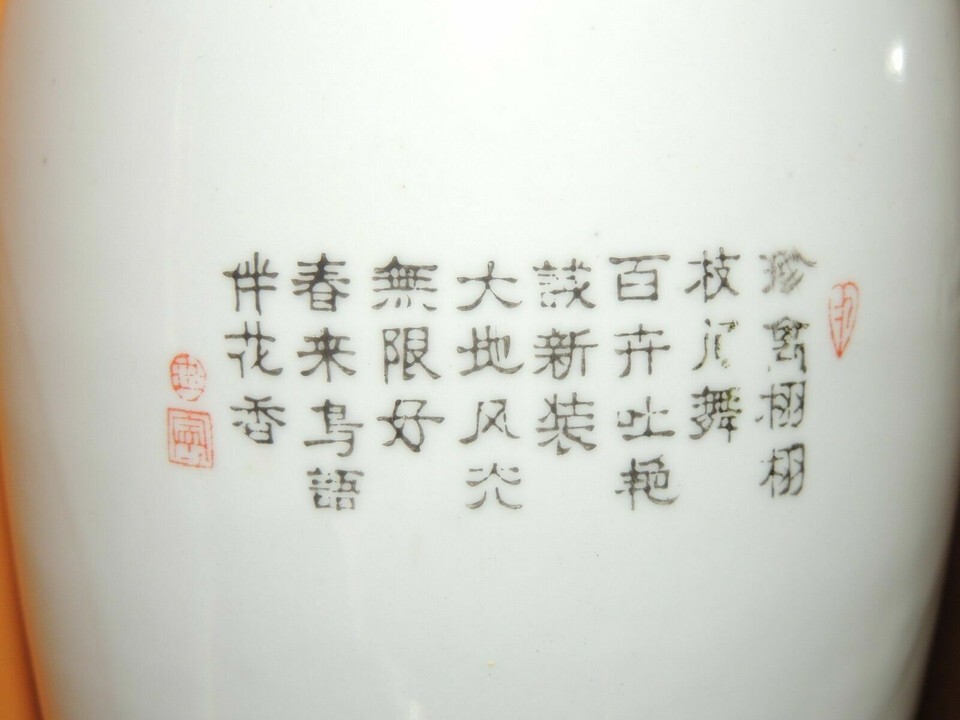 珍禽栩栩
枝间舞
百卉吐艳
誇新装
大地风光
無限好
春来鸟語
伴花香